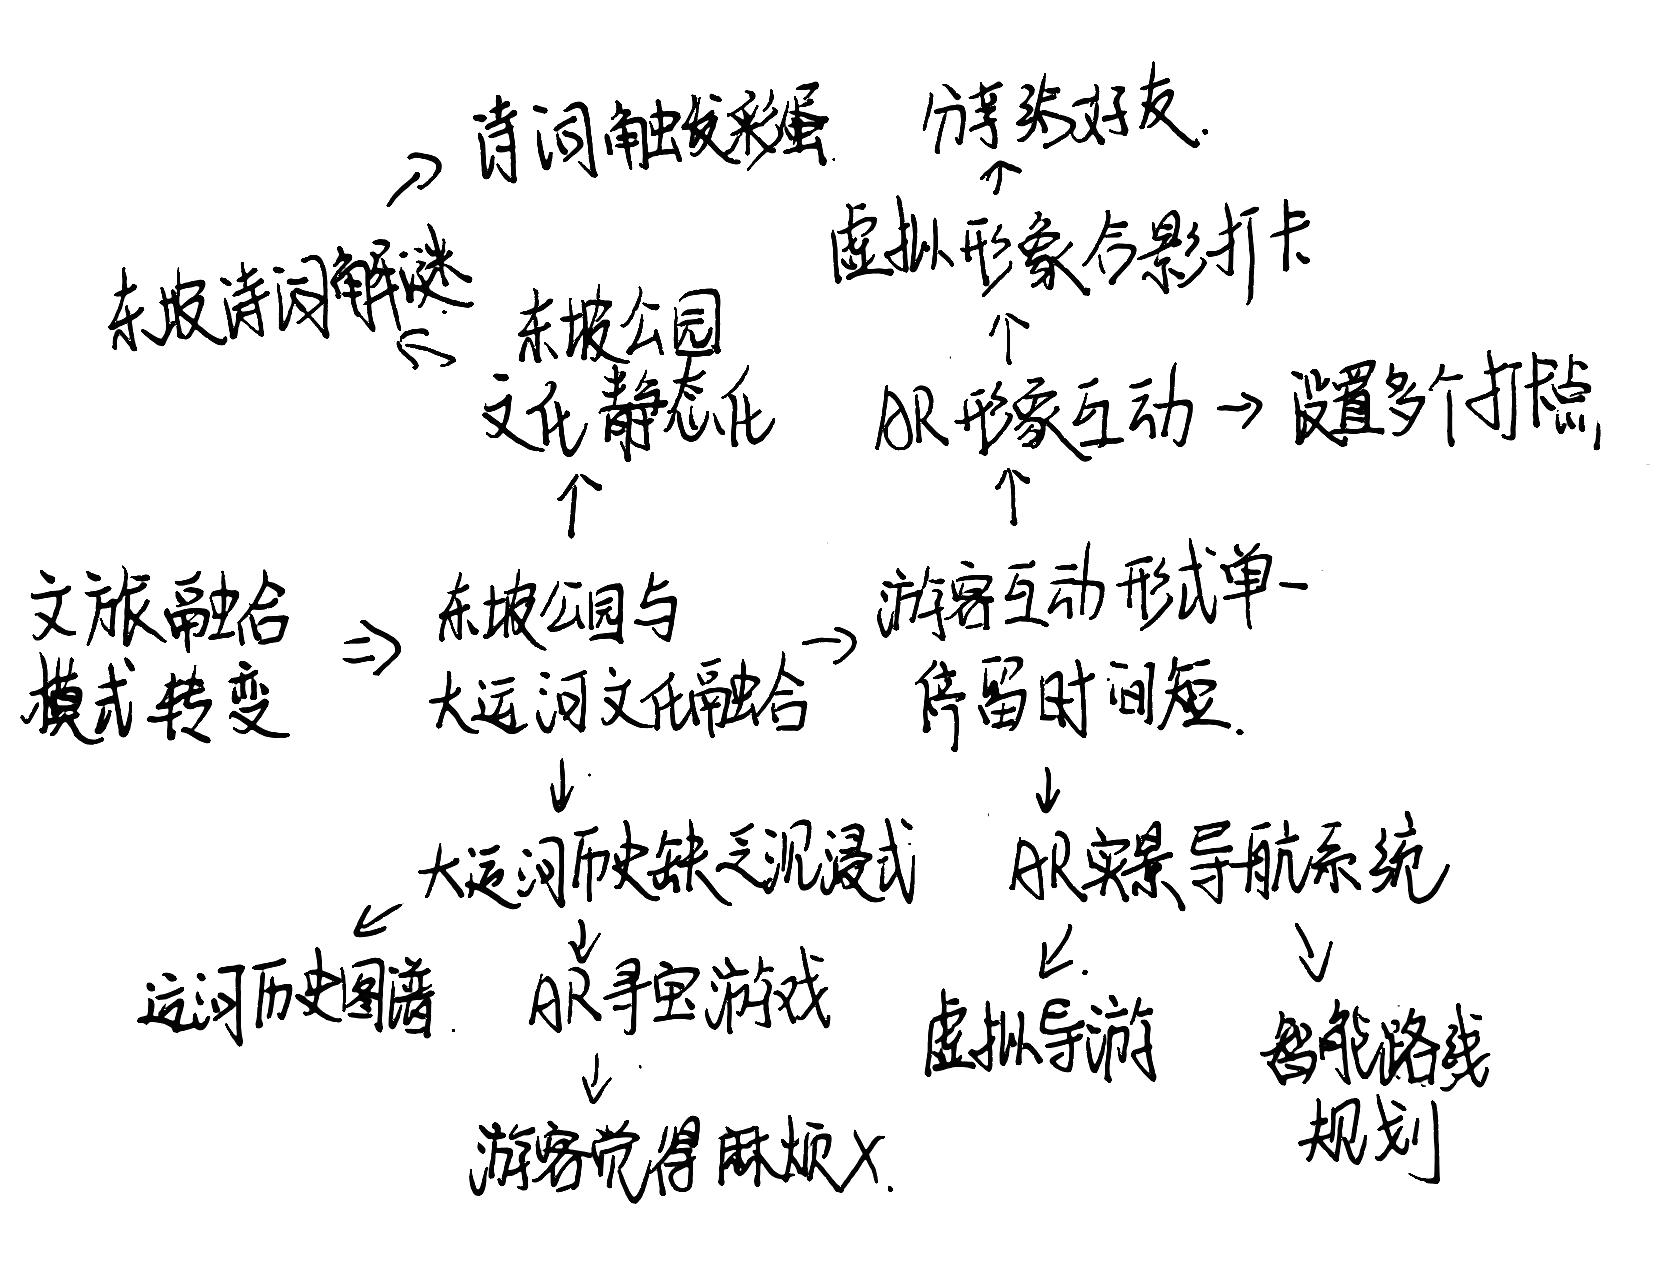 诗词触发彩蛋.
分享给好友.
虚拟形象合影打卡
东坡诗词解谜
东坡公园
文化静态化
AR形象互动→设置多个打卡点,
文旅融合
模式转变
东坡公园与
大运河文化融合
游客互动形式单一
停留时间短.
大运河历史缺乏沉浸式
AR实景导航系统
运河历史图谱.
AR寻宝游戏
虚拟导游
智能路线
规划
游客觉得麻烦X.